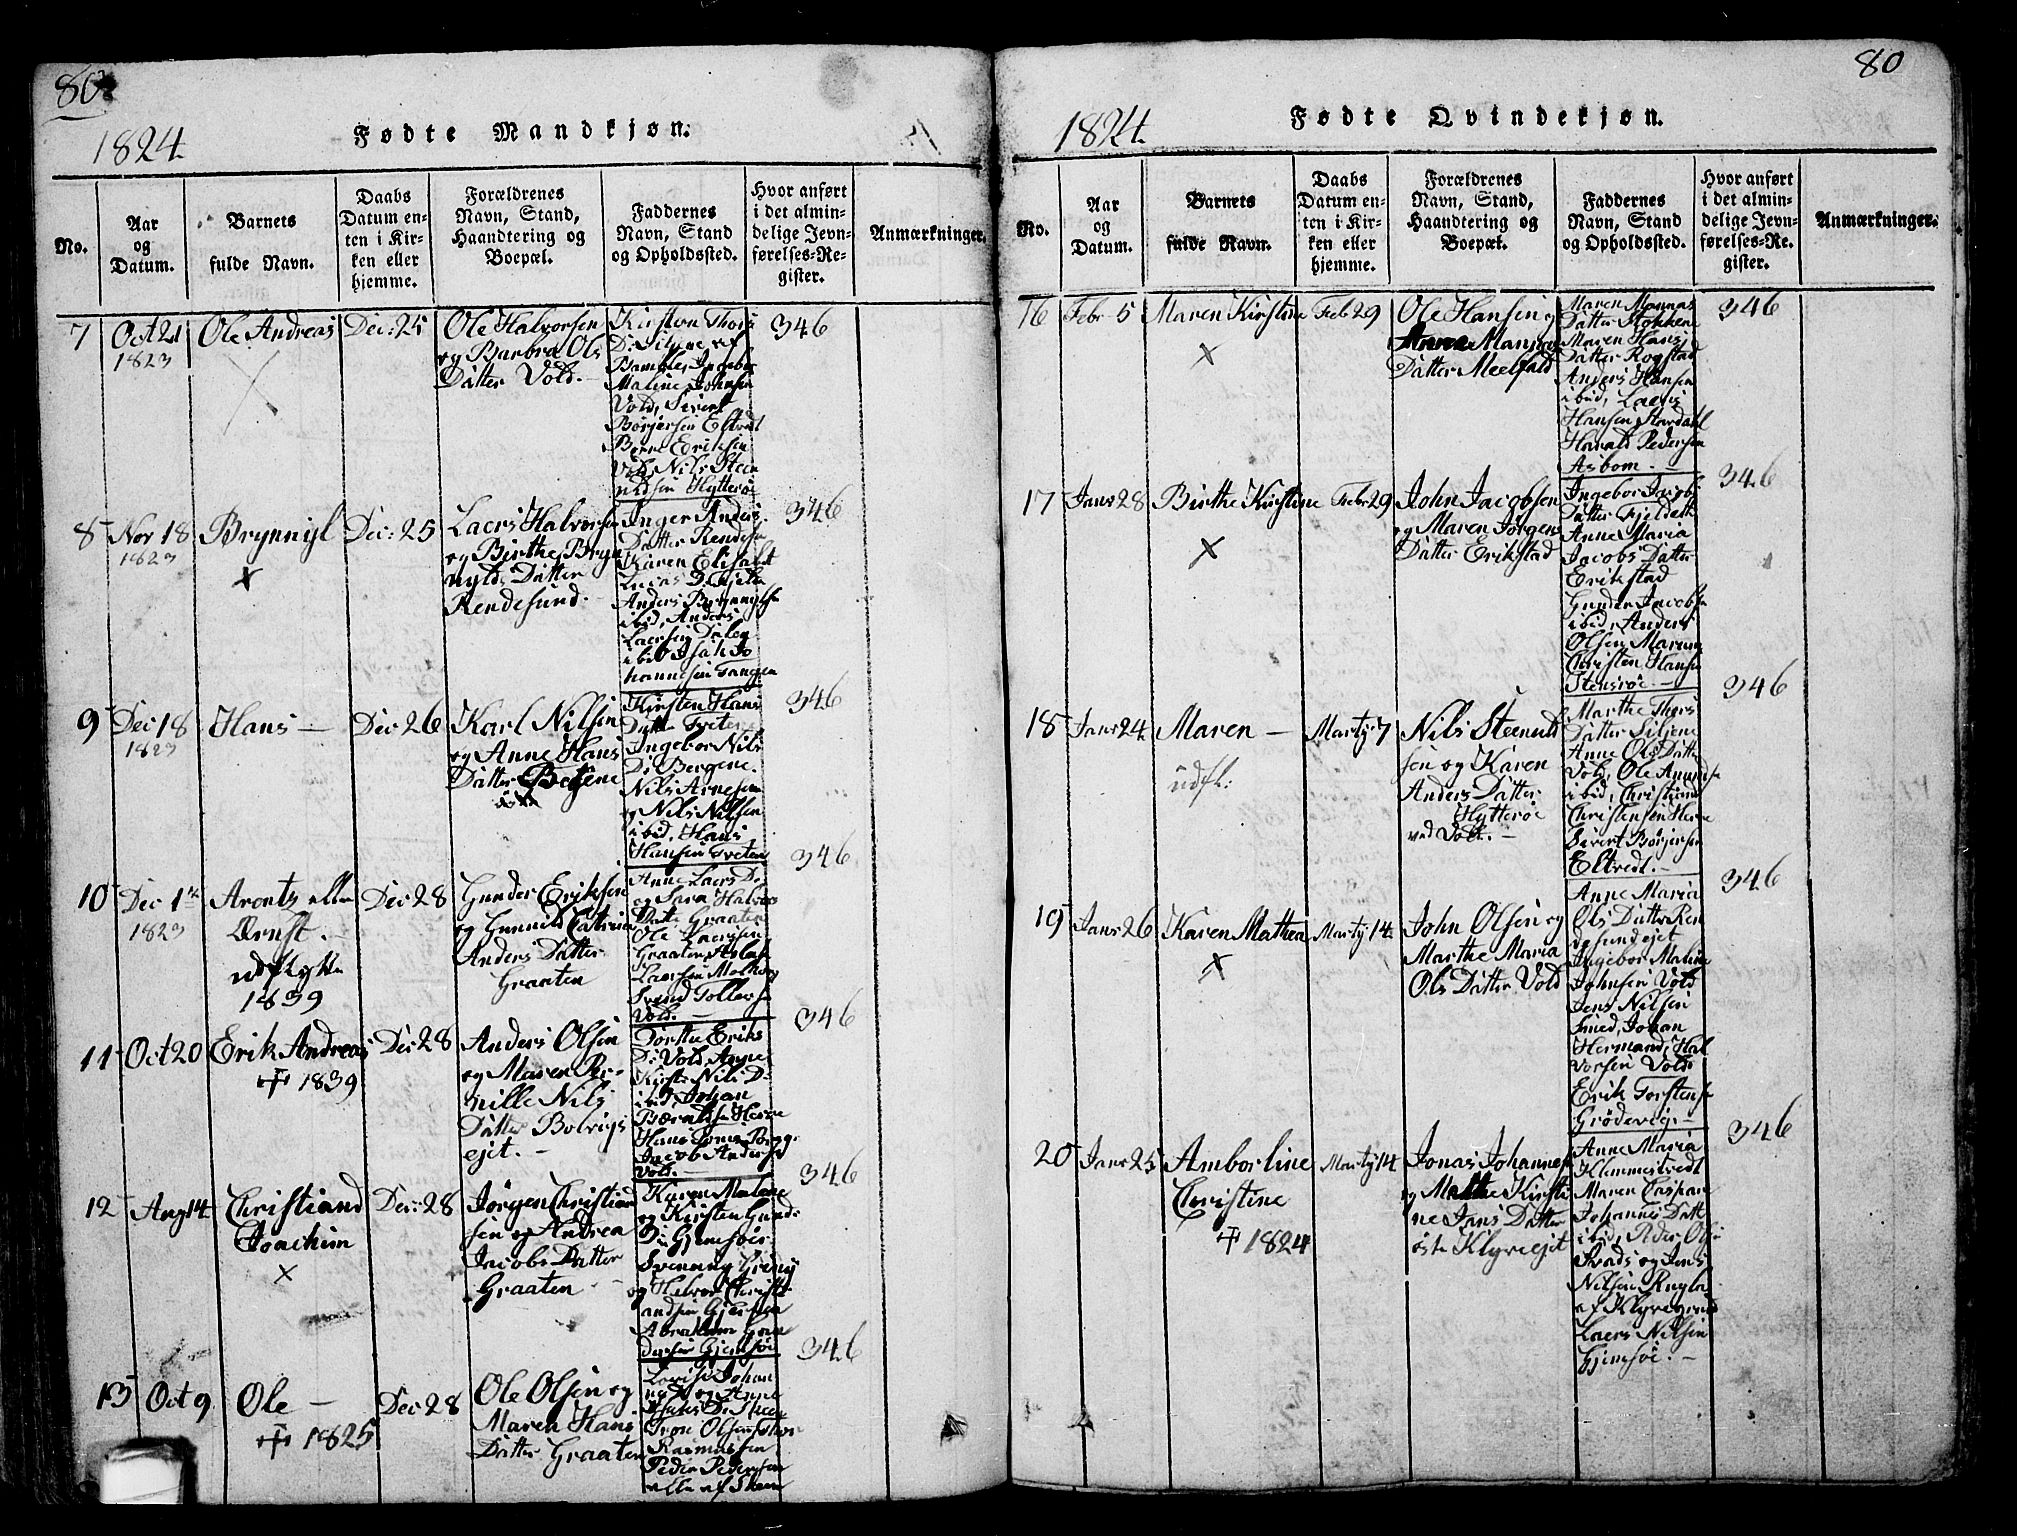 80
1824.
Fødte Mandkjøn.
No.
Aar
og
Datum.
Barnets
fulde Navn.
Daabs
Datum en-
ten i Kir-
ken eller
hjemme.
Forældrenes
Navn, Stand,
Haandtering og
Boepæl.
Faddernes
Navn, Stand
og Opholdssted.
Hvor anført
i det almin-
delige Jevn-
førelses-Re-
gister.
Anmærkninger.
7
Oct 21
1823
Ole Andreas
Dec: 25
Ole Halvorsen
og Barbra Ols
Datter Vold.
Kirsten Thors
Bamble, Ingebor
Maline Johnsen
Vold, Sivert
Børjersen Eltvedt
Nils Steen
Hytterøe
346
8
Nov 18
1823
Brynnyl
Dec: 25
Laers Halvorsen
og Birthe Bryn
nylds Datter
Rendesund.
Inger Anders
Datter Rendesu
Karen Elisabt
Anders Brynnylse
ibid, Anders
Laersen
ibid Isak Jo
hannesen Tangen
346
9
Dec 18
1823
Hans —
Dec: 26
Karl Nilsen
og Anne Hans
Datter
Kirsten Hans
Datter Tvetene
Ingebor Nils
D: Bergene.
Nils Arnesen
og Nils Nilsen
ibid, Hans
Hansen Tveten
346
10
Dec 1
1823
Aronts eller
Ernst.
udflytte
1839
Dec: 28
Gunder Eriksen
og Gunnild Catrina
Anders Datter
Graaten
Anne Laers D:
og Sara Halvors
Datte Graaten
Ole Laersen
Graaten, Aslak
Laersen
Svend Tollefse
Vold. —
346
11
Oct 20
Erik Andreas
1839
Dec: 28
Anders Olsen
og Maren Per-
nille Nils
Datter Bolvigs
ejet. —
Dorthe Eriks
D: Vold, Anne
Kirste Nils D:
ibid, Johan
Jacob Anderse
Vold. —
346
12
Aug 14
Christiand
Joachim
Dec: 28
Jørgen Christiand
sen og Andrea
Jacobs Datter
Graaten —
Karen Malene
og Kirsten Gund:
D: Gjemsøe
og Halvor Christi
andsen Gjemsøe
Abraham Gun
dersen Gjemsøe
346
13
Oct 9
Ole —
1825
Dec: 28
Ole Olsen og
Maren Hans
Datter Graaten
Lovise Johan
Rasmussen
Peder Pedersen
alle af Skeen
346
80
1824.
Fødte Qvindekjøn.
No.
Aar
og
Datum.
Barnets
fulde Navn.
Daabs
Datum en-
ten i Kir-
ken eller
hjemme.
Forældrenes
Navn, Stand,
Haandtering og
Boepæl.
Faddernes
Navn, Stand
og Opholdssted.
Hvor anført
i det almin-
delige Jevn-
førelses-Re-
gister.
Anmærkninger.
16
Febr 5
Maren Kirstine
Feb 29
Ole Hansen og
Datter Meelfald
Datter Stokkene
Maren Hans
Datter Rogstad
Anders Hansen
ibid, Laers
Hansen Stordahl
Harald Pedersen
Asbom. —
346
17
Janr 28
Birthe Kirstine
Febr 29
John Jacobsen
og Maren Jørgens
Datter Erikstad
Ingebor Jacobs
Datter Fjeldett
Anne Maria
Jacobs Datter
Erikstad
Gunder Jacobse
ibid, Anders
Olsen
Christen Hanse
Stensrøe. —
346
18
Janr 24.
Maren —
udfl:
Martz 7
Nils Steenuld
sen og Karen
Anders Datter
Hytterøe
ved Vold. —
Marthe Thors
Datter Siljene
Anne Ols Datte
Vold, Ole Amundse
ibid, Christiand
Christensen Herre
Sivert Børjersen
Eltvedt. —
346
19
Janr 26
Karen Mathea
Martz 14.
John Olsen og
Marthe Maria
Ols Datter Vold
Anne Maria
Ols Datter Ren
desundejet
Ingebor Maline
Johnsen Vold
Jens Nilsen
Smed, Johan
Hermand, Hal
vorsen Vold
Erik Torstense
Grødevig. —
346
20
Janr 25
Amborline
Christine
1824
Martz 14.
Jonas Johannes
og Marthe Kirsti
ne Jans Datter
øste Klyveejet
Anne Maria
Klemmestvedt
Maren Caspare
Johannes Datt
ibid, Peder Ols
og Jens
Nilsen
af Klyvegrund
Laers Nilsen
Gjemsøe. —
346